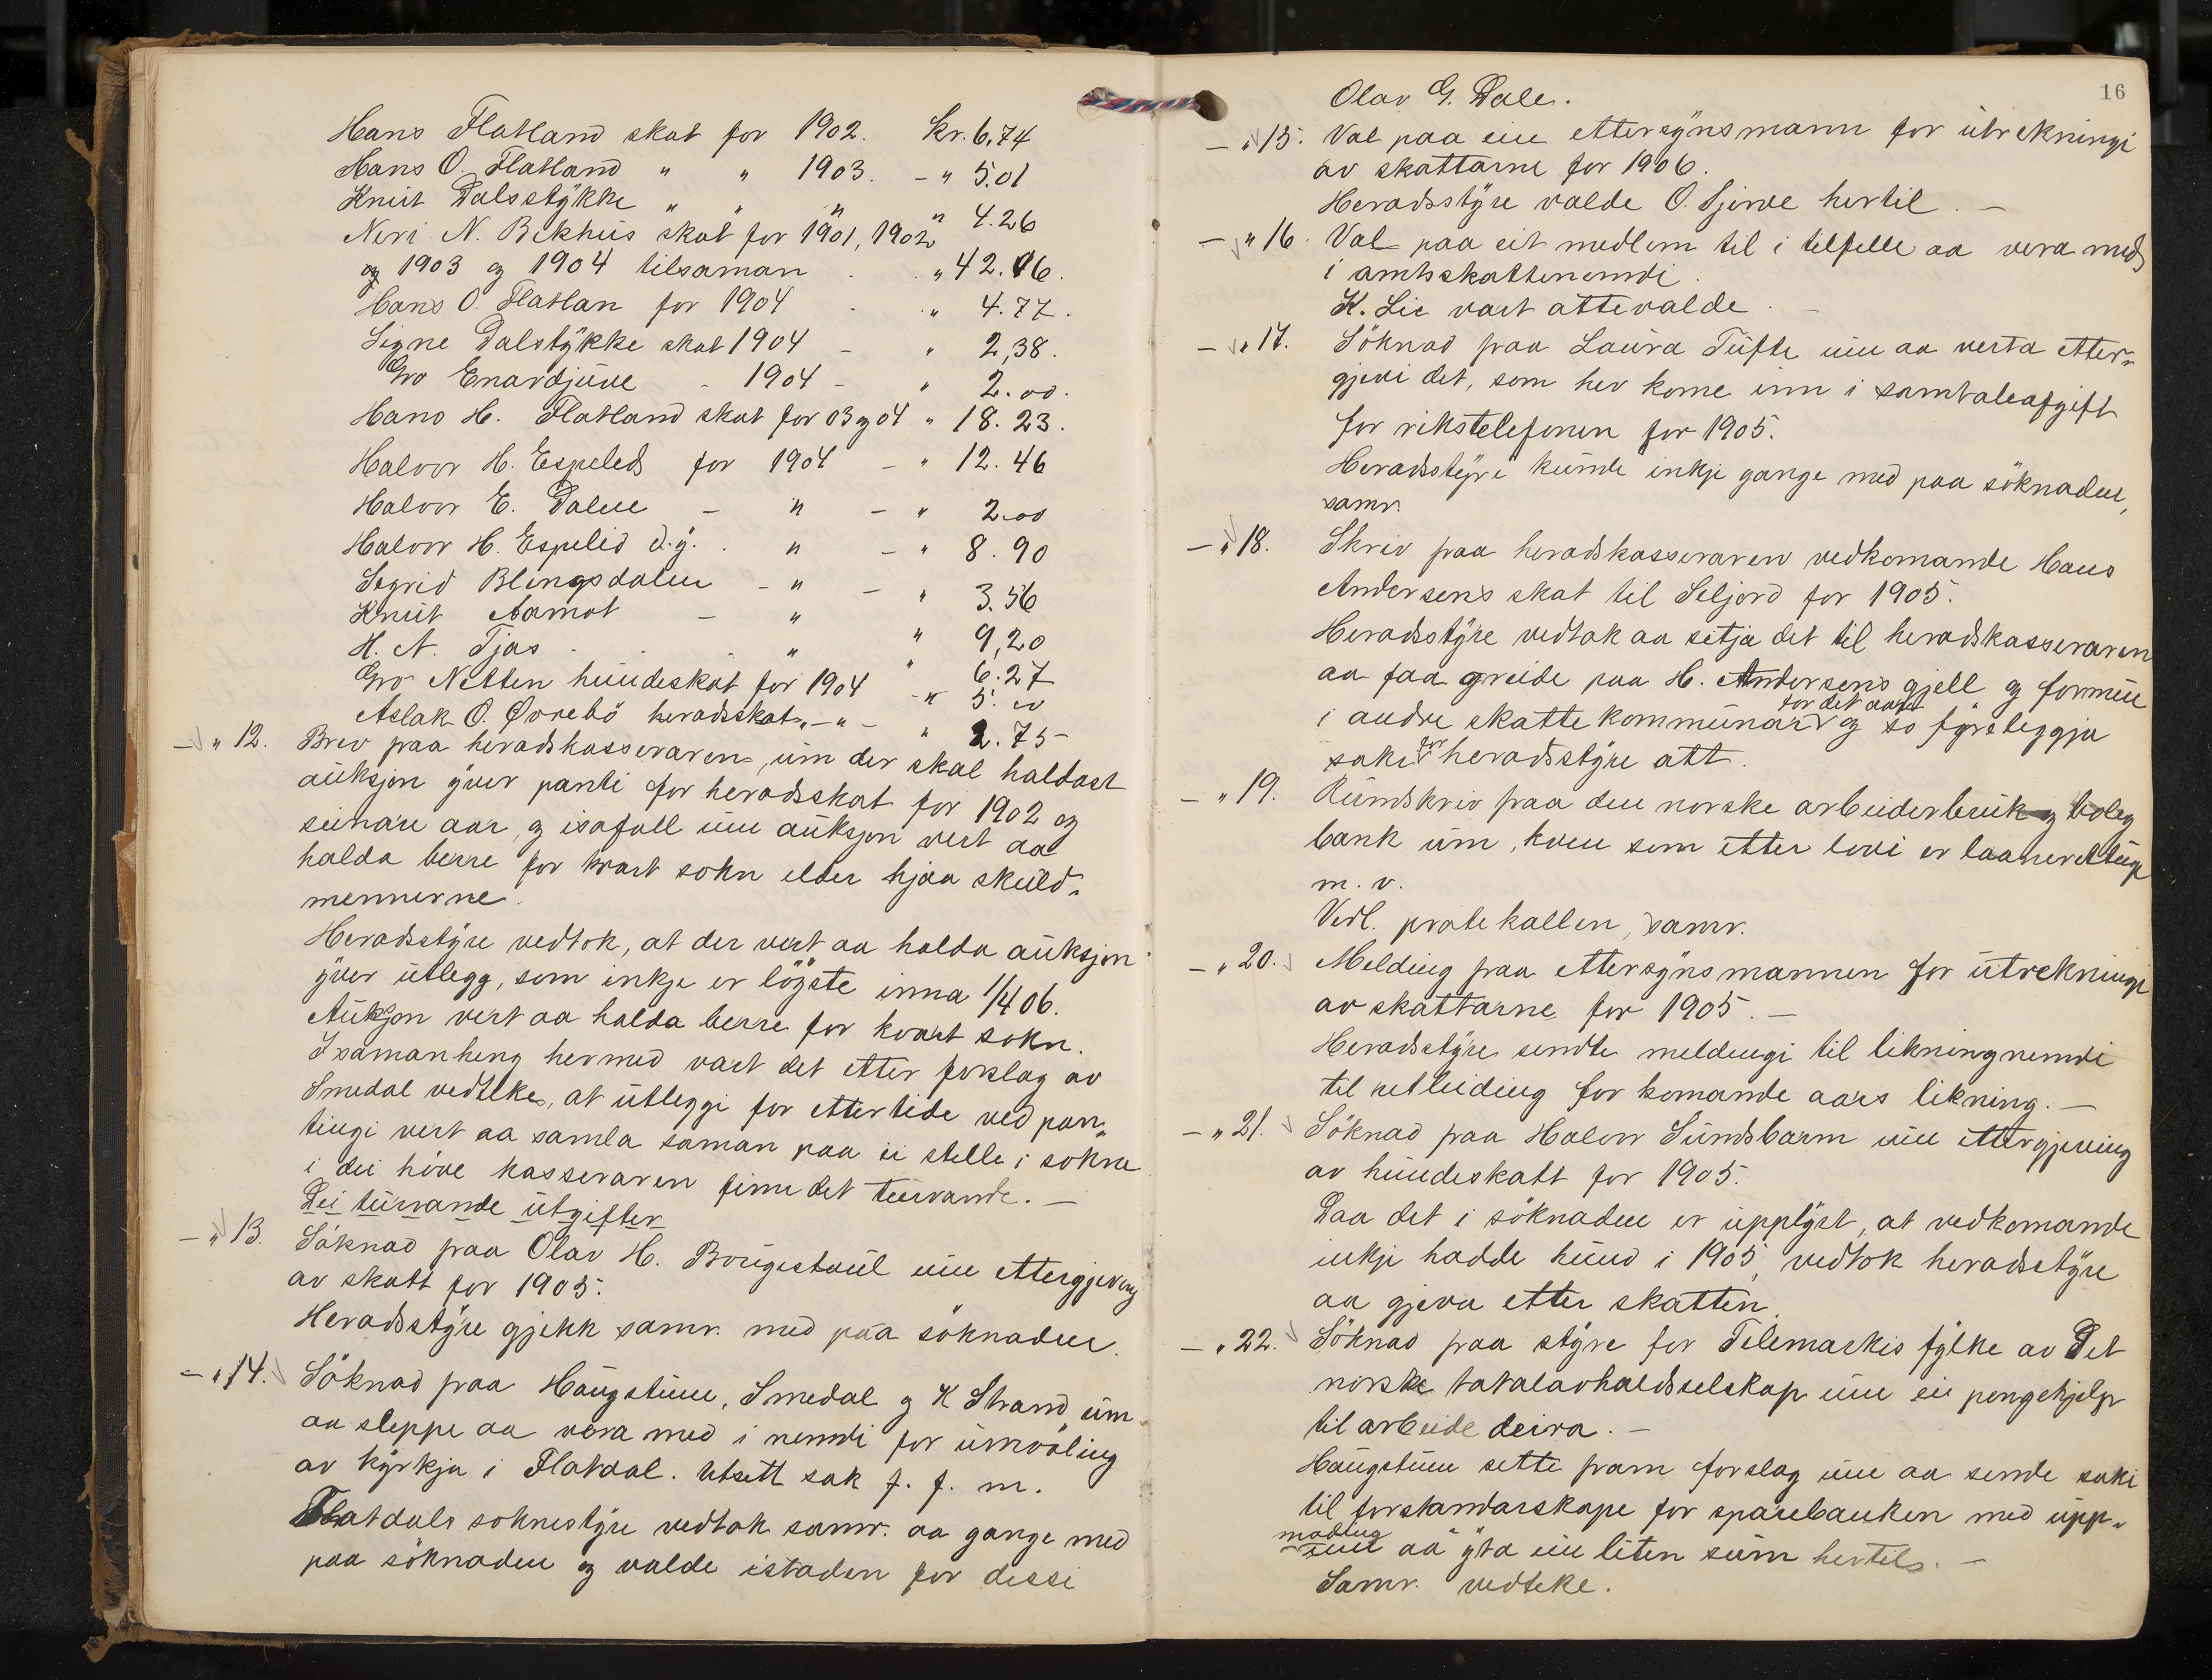 Hans Flatland skat for 1902. Kr. 6,74
Hans O. Flatland " " 1903. - " 5.01
Knut Dalsstykke " " " " 4.26
Neri N. Bekhus skat for 1901, 1902
og 1903 og 1904 tilsaman . . " 42.16.
Hans O. Flatlan for 1904 . . " 4.77.
Signe Dalstykke skat 1904 - " 2,38.
Gro Enardjuve - 1904 - " 2.00.
Hans H. Flatland skat for 03 og 04 " 18.23.
Halvor H. Espeled for 1904 - " 12.46
Halvor E. Dalen - " - " 2.00
Halvor H. Espelid d.y. . " - " 8.90
Sigrid Blengsdalen - " - " 3.56
Knut Aamot - " " 9,20
H. A. Tjas . . . " " 6.27
Gro Netten hundeskat for 1904 - " 5.00
Aslak O. Øvrebö heradskat " - " - " 2.75
- " 12. Brev paa heradskasseraren, um der skal haldast
auksjon yver panti for heradsskat for 1902 og
seinare aar, og isafall um auksjon vert aa
halda berre for kvart sokn elder hjaa skuld-
mennerne.
Heradsstyre vedtok, at der vert aa halda auksjon
yver utlegg, som inkje er löyste inna 1/4 06.
Auksjon vert aa halda berre for kvart sokn.
I samanheng hermed vart det etter forslag av
Smedal vedteke, at utleggi for ettertide ved pan-
tingi vert aa samla saman paa ei stelle i sokne
i dei höve kasseraren finn det turvande. -
Dei turvande utgifter
- " 13. Söknad paa Olav H. Bougestaul um ettergjeving
av skatt for 1905.
Heradsstyre gjekk samr. med paa söknaden.
- " 14. Söknad paa Haugstuen, Smedal og K Strand um
aa sleppe aa vera med i nemdi for umvöling
av kyrkja i Flatdal. Utsett sak f. f. m.
Flatdals soknestyre vedtok samr. aa gange med
paa söknaden og valde istaden for dessi
16
Olav G. Dale.
- " 15. Val paa ein ettersynsmann for utrekningi
av skattarne for 1906.
Heradsstyre valde O. Gjerde hertil. -
- " 16. Val paa eit medlem til i tilfelle aa vera med
i amtsskattenemdi.
K. Lie vart attevalde.
- " 17. Söknad paa Laura Tufte um aa verta etter-
gjevi det, som hev kome inn i samtaleafgift
for rikstelefonen for 1905.
Heradsstyre kunde inkje gange med paa söknaden,
samr.
- " 18. Skriv paa heradskasseraren vedkomande Hans
Andersens skat til Seljord for 1905.
Heradsstyre vedtok aa setja det til heradskasseraren
aa faa greide paa H. Andersens gjell og formue
for det aaret
i andre skattekommunar og so fyreleggja
saki for heradsstyre att.
- " 19. Rundskriv paa den norske arbeiderbruk og bolig
bank um, kven som etter lovi er laaneretttige
m. v.
Vedl. protekallen, samr.
- " 20. Melding paa ettersynsmannen for utrekningi
av skattarne for 1905. -
Heradsstyre sendte meldingi til likningnemdi
til rettleiding for komande aars likning. -
- " 21. Söknad paa Halvor Sundsbarm um ettergjeving
av hundeskatt for 1905.
Daa det i söknaden er upplyst, at vedkomande
inkje hadde hund i 1905, vedtok heradsstyre
aa gjeva etter skatten.
- " 22. Söknad paa styre for Telemarkis fylke av Det
norske totalavhaldsselskap um ei pengehjelp
til arbeide deira. -
Haugstuen sette fram forslag um aa sende saki
til forstandarskape for sparebanken med upp-
moding
um aa yta ein liten sum hertil. -
Samr. vedteke.